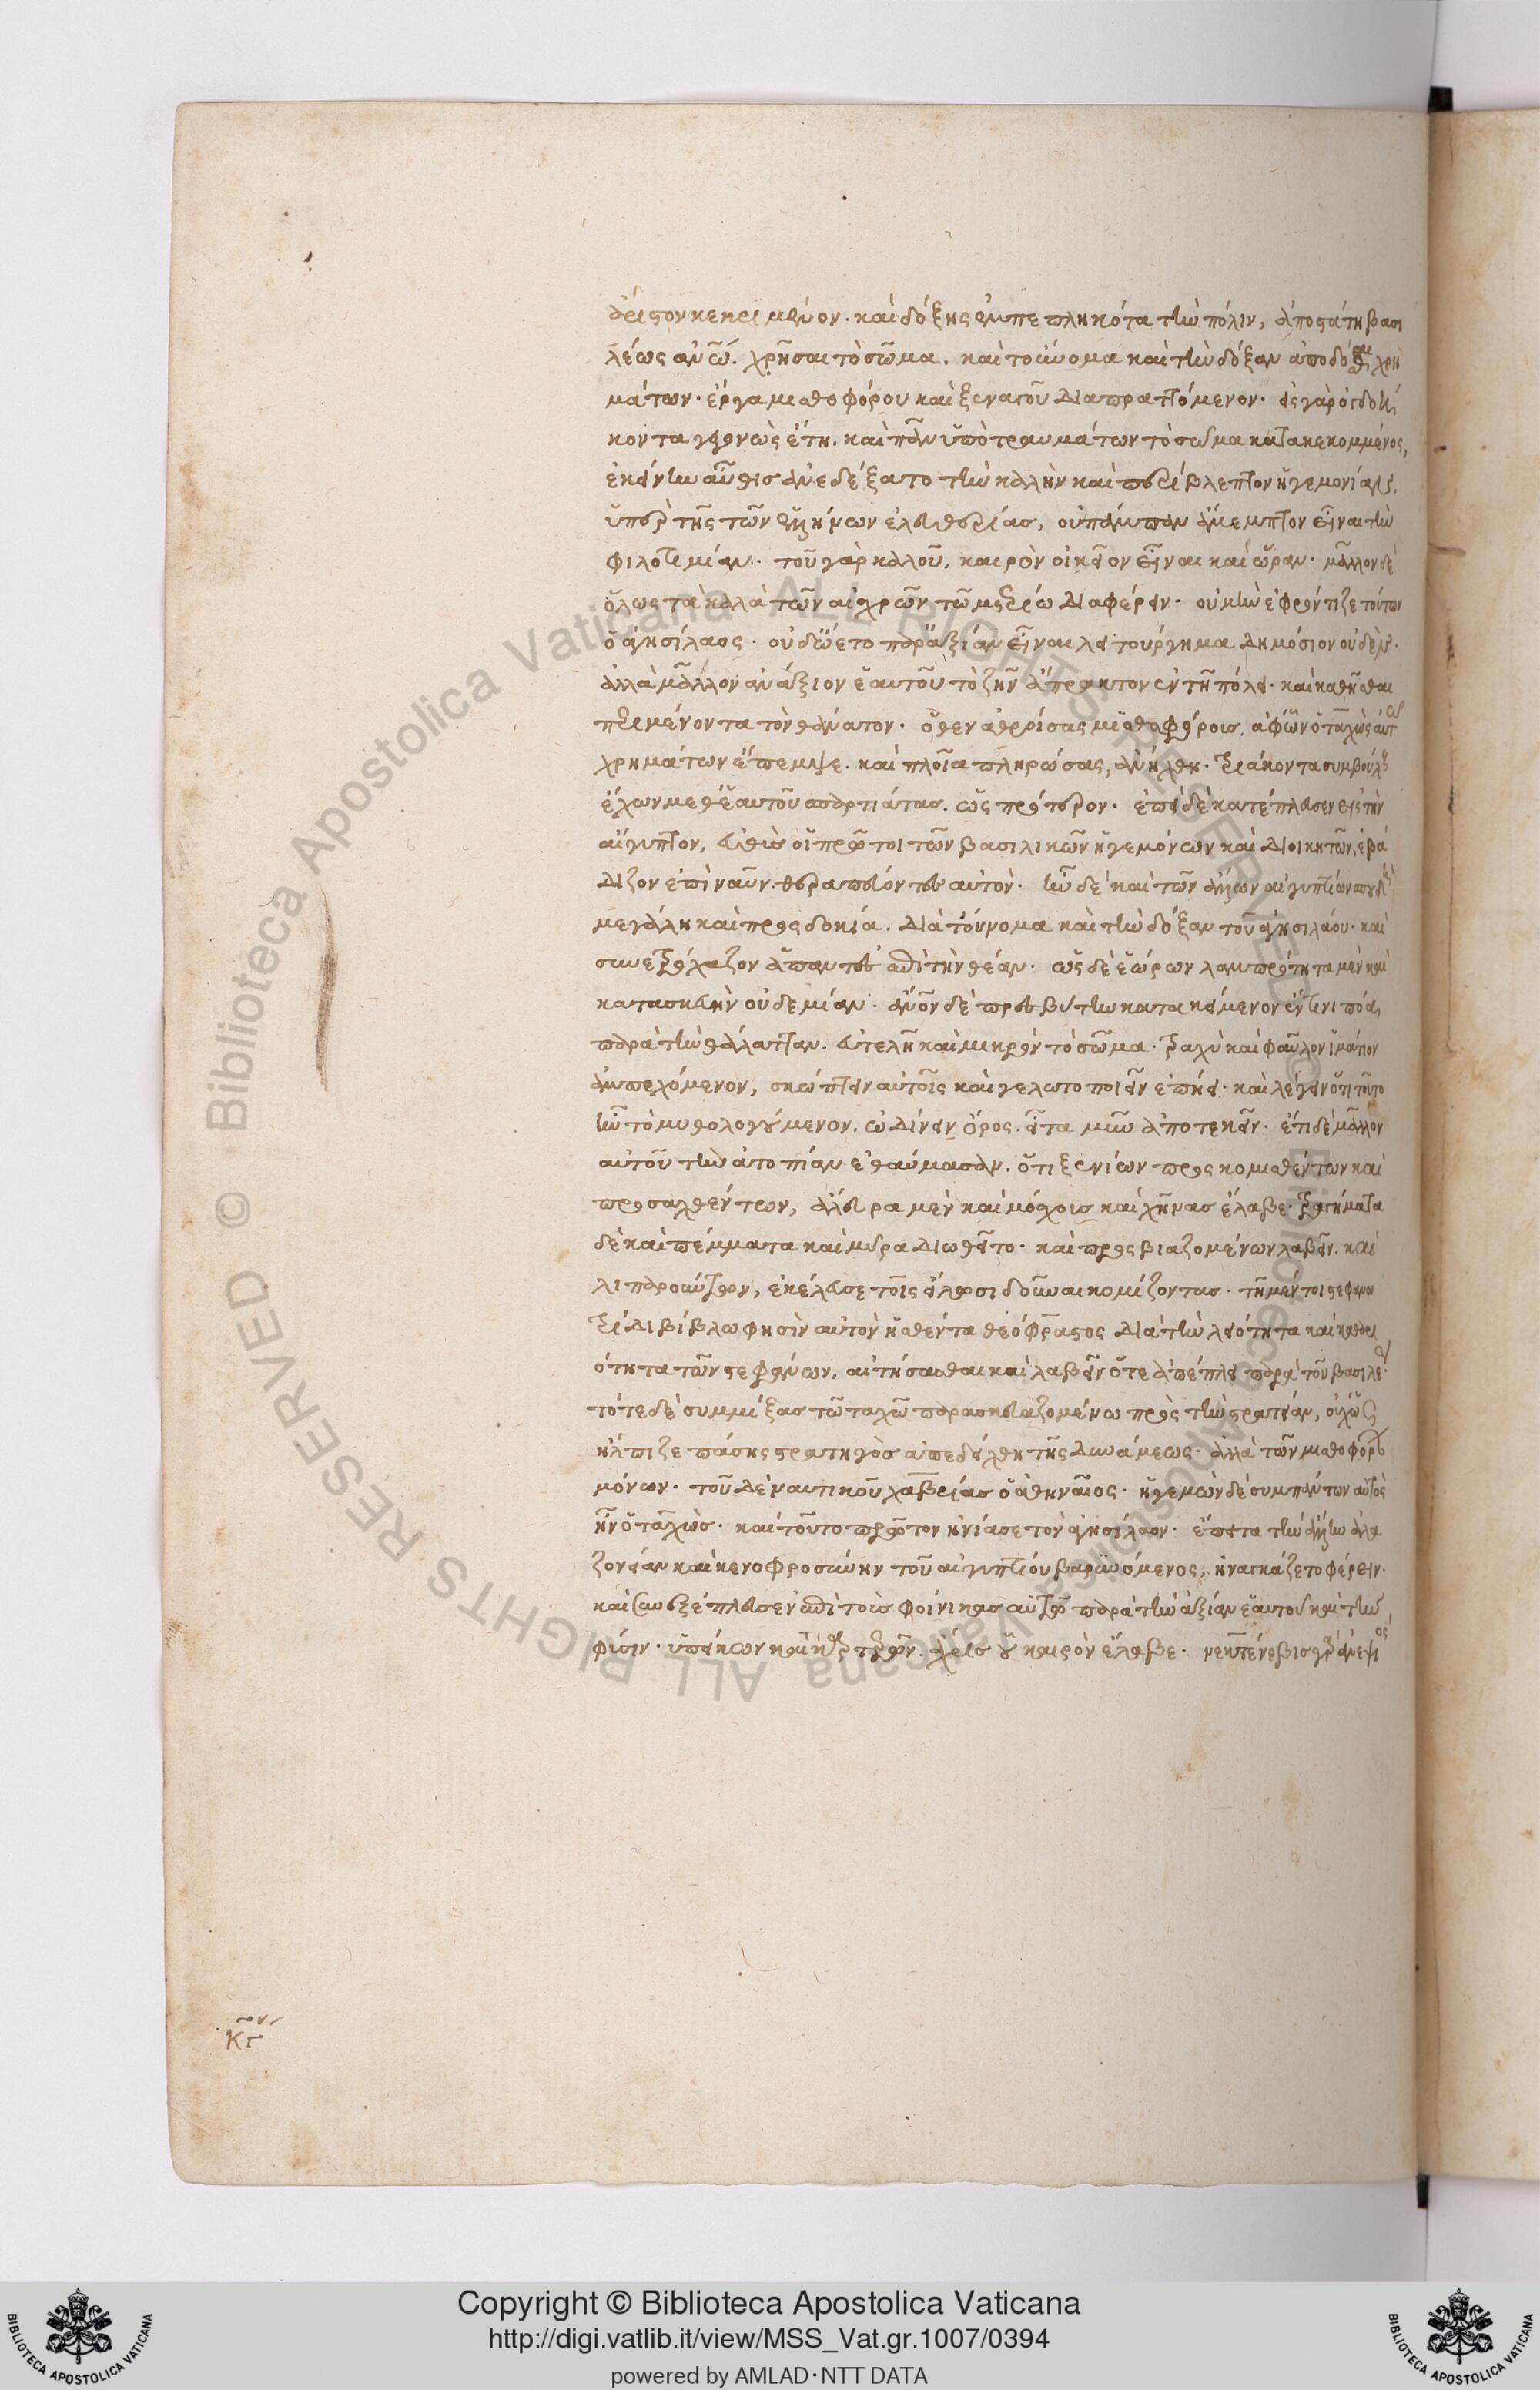 ἄριστον κεκριμένον· καὶ δόξης ἐμπεπληκότα τὴν πόλιν, ἀποστάτη βασι
λέως ἀν̅ω̅. χρῆσαι τὸ σῶμα. καὶ τοὔνομα καὶ τὴν δόξαν ἀποδόσθαι χρη
μάτων· ἔργα μισθοφόρου καὶ ξεναγοῦ διαπραττόμενον· εἰ γὰρ ὀγδοή
κοντα γεγονὼς ἔτη. καὶ πᾶν ὑπὸ τραυμάτων τὸ σῶμα κατακεκομμένος,
ἐκείνην αὖθις ἀνεδέξατο τὴν καλὴν καὶ περίβλεπτον ἡγεμονίαν.
ὑπὲρ τῆς τῶν ἑλλήνων ἐλευθερίας, οὐ πάμπαν ἄμεμπτον εἶναι τὴν
φιλοτιμίαν. τοῦ γὰρ καλοῦ, καιρὸν οἰκεῖον εἶναι καὶ ὥραν· μᾶλλον δὲ
ὅλως τὰ καλὰ τῶν αἰσχρῶν τῶ μετρίω διαφέρειν· οὐ μὴν ἐφρόντιζε τούτων
ὁ ἀγησίλαος· οὐδ' ᾤετο παρ' ἀξίαν εἶναι λειτούργημα δημόσιον οὐδέν.
ἀλλὰ μᾶλλον ἀνάξιον ἑαυτοῦ τὸ ζῆν ἄπρακτον ἐν τῆ πόλει· καὶ καθῆσθαι
περιμένοντα τὸν θάνατον· ὅθεν ἀθροίσας μισθοφόρους. ἀφ' ὧν ὁ ταχὼς αὐτῶ
χρημάτων ἔπεμψε. καὶ πλοῖα πληρώσας, ἀνήχθη· τριάκοντα συμβούλους
ἔχων μεθ' ἑαυτοῦ σπαρτιάτας. ὡς πρότερον· ἐπεὶ δὲ κατέπλευσεν εἰς τὴν
αἴγυπτον, εὐθὺς οἱ πρῶτοι τῶν βασιλικῶν ἡγεμόνων καὶ διοικητῶν, ἐβά
διζον ἐπὶ ναῦν. θεραπεύοντες αὐτόν· ἦν δὲ καὶ τῶν ἄλλων αἰγυπτίων σπουδὴ
μεγάλη καὶ προσδοκία. διὰ τοὔνομα καὶ τὴν δόξαν τοῦ ἀγησιλάου· καὶ
συνετρόχαζον ἅπαντες ἐπὶ τὴν θέαν· ὡς δὲ ἑώρων λαμπρότητα μὲν καὶ
κατασκευὴν οὐδεμίαν· ἄν̅ο̅ν δὲ πρεσβύτην κατακείμενον ἔν τινι πόα,
παρὰ τὴν θάλατταν. εὐτελῆ καὶ μικρὸν τὸ σῶμα· τραχὺ καὶ φαῦλον ἱμάτιον
ἀμπεχόμενον, σκώπτειν αὐτοῖς καὶ γελωτοποιεῖν ἐπήει· καὶ λέγειν ὅτι τοῦτο
ἦν τὸ μυθολογούμενον. ὠδίνειν ὄρος. εἶτα μῦν ἀποτεκεῖν· ἔτι δὲ μᾶλλον
αὐτοῦ τὴν ἀτοπίαν ἐθαύμασαν. ὅτι ξενίων προσκομισθέντων καὶ
προσαχθέντων, ἄλευρα μὲν καὶ μόσχους καὶ χῆνας ἔλαβε· τραγήματα
δὲ καὶ πέμματα καὶ μύρα διωθεῖτο· καὶ προσβιαζομένων λαβεῖν. καὶ
λιπαρούντων, ἐκέλευσε τοῖς εἵλωσι δοῦναι κομίζοντας· τῆ μέντοι στεφανω
τρίδι βίβλω φησὶν αὐτὸν ἡσθέντα θεόφραστος διὰ τὴν λειότητα καὶ καθαρι
ότητα τῶν στεφάνων, αἰτήσασθαι καὶ λαβεῖν ὅτε ἀπέπλει παρὰ τοῦ βασιλέως·
τότε δὲ συμμίξας τῶ ταχῶ παρασκευαζομένω πρὸς τὴν στρατείαν, οὐχ ὡς
ἤλπιζε πάσης στρατηγὸς ἀπεδείχθη τῆς δυνάμεως· ἀλλὰ τῶν μισθοφόρων
μόνων. τοῦ δὲ ναυτικοῦ χαβρίας ὁ ἀθηναῖος· ἡγεμὼν δὲ συμπάντων αὐτὸς
ἦν ὁ ταχώς· καὶ τοῦτο πρῶτον ἠνίασε τὸν ἀγησίλαον· ἔπειτα τὴν ἄλλην ἀλα
ζονείαν καὶ κενοφροσύνην τοῦ αἰγυπτίου βαρυνόμενος, ἠναγκάζετο φέρειν·
καὶ συνεξέπλευσεν ἐπὶ τοὺς φοίνικας αὐτῶ παρὰ τὴν ἀξίαν ἑαυτοῦ καὶ τὴν
φύσιν· ὑπείκων καὶ καρτερῶν. ἄχρις οὗ καιρὸν ἔλαβε· νεκτένεβις γὰρ ἀνεψιὸς
κε<sup>τον</sup>